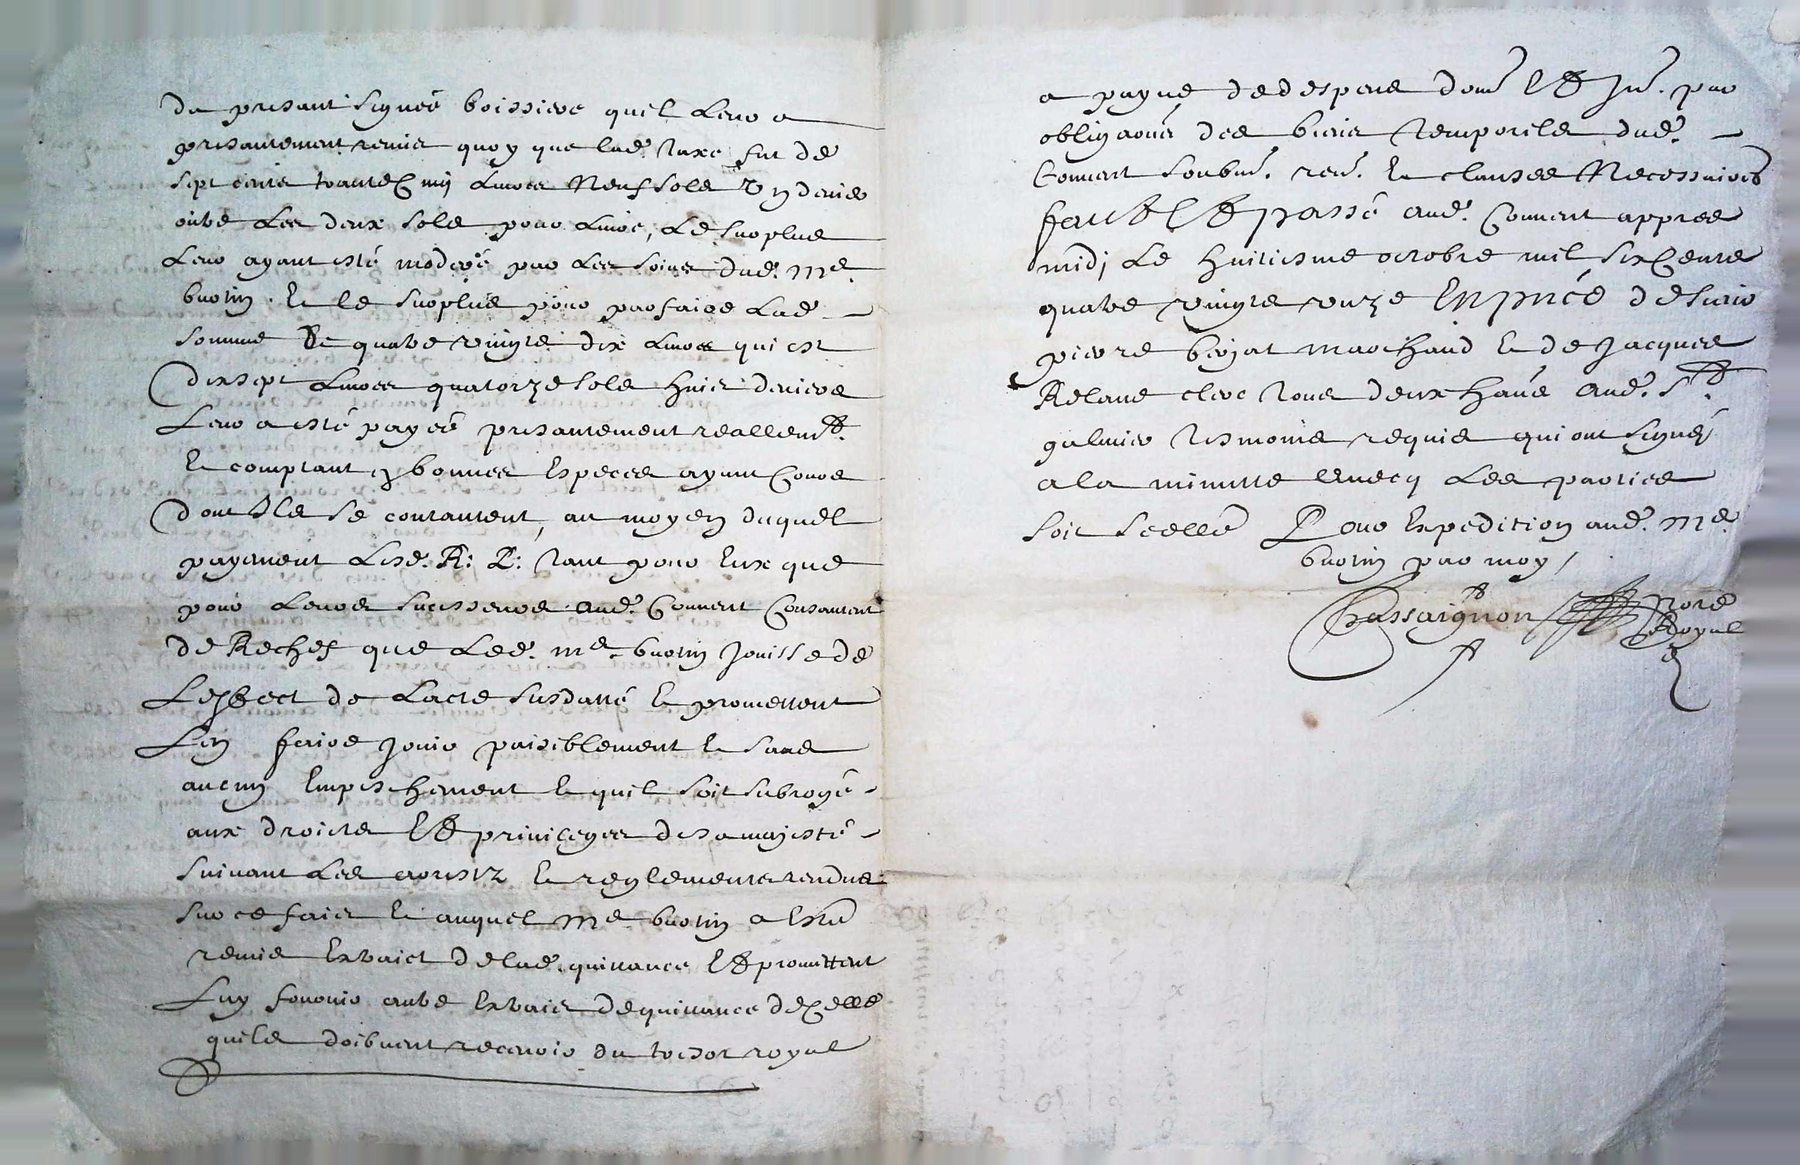 du presant signéé boissiere quil leur a
presantement remis quoy que lad. taxe fut de
sept cents trante mil livres neuf sols un denier
outre les deux sols pour livre, le surplus
leur ayant esté moderé par les soins dud. me.
burtin. et le surplus pour parfaire lad.
somme de quatre vingts dix livres qui est
dixsept livres quatorze sols huit deniers
leur a esté payéé presantement reallemt.
et comptant en bonnes especes ayant cours
dont ils se contantent, au moyen duquel
payement lesd. R: P: tant pour eux que
pour leurs successeurs aud. Convent Consantent
de Rechef que led. me. burtin jouisse de
Leffect de lacte susdatté et promettent
Len faire jouir paisiblement et sans
aucun empeschement et quil soit subrogé
aux droicts et privileges de sa majesté
suivant les arrestz et reglements rendus
sur ce faict et auquel me. burtin a esté
remis extraict de lad. quittance et promettent
Luy fournir autre extraict de quittance de Celle
quils doibvent recevoir du tresor royal
a payne de despens dom. et in. par
obligaons des biens temporels dud.
Convent soubm. ren. et clauses Necessaires
faict et passé aud. Convent appres
midi le huitiesme octobre mil six Cents
quatre vingts unze en pnce de sieur
pierre marchand et de jacques
Relave clerc tous deux havs aud. St.
galmier tesmoins requis qui ont signé
a la minutte avecq les parties
soit scellé Pour expedition aud. me.
burtin par moy,
Chassaignon notre
Royal